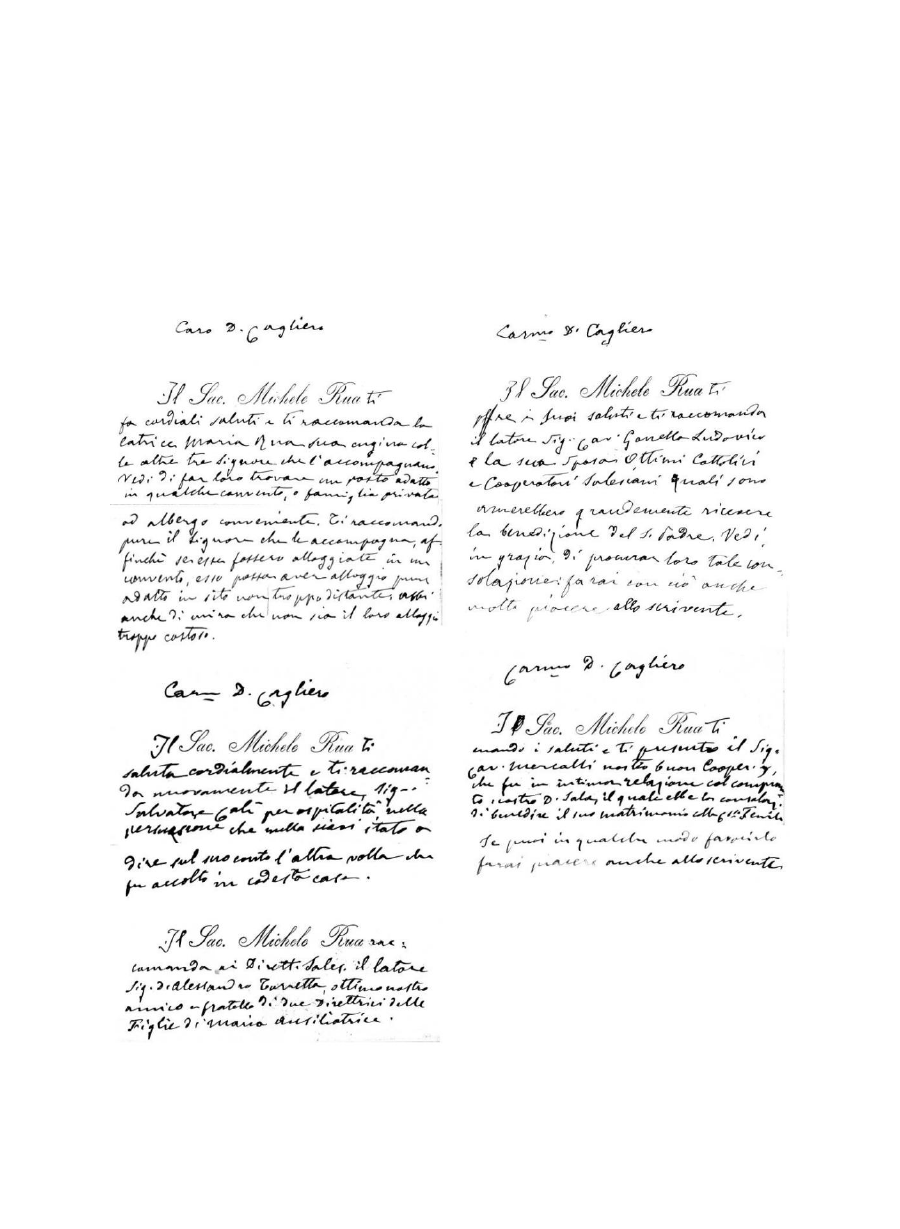 Caro D. Cagliero
Il Sac. Michele Rua ti
fa cordiali saluti e ti raccomanda la
latrice Maria Rua sua cugina col-
le altre tre Signore che l'accompagnano.
Vedi di far loro trovare un posto adatto
in qualche convento, o famiglia privata
od albergo conveniente. Ti raccomando
pure il Signore che le accompagna, af-
finchè se esse fossero alloggiate in un
convento, esso possa aver alloggio pure
adatto in sito non troppo distante; abbi
anche di mira che non sia il loro alloggio
troppo costoso.
Carmo D. Cagliero
Il Sac. Michele Rua ti
saluta cordialmente e ti raccoman
da nuovamente il latore, Sig.
Salvatore Calì per ospitalità, nella
persuasione che nulla siasi stato a
dire sul suo conto l'altra volta che
fu accolto in codesta casa.
Il Sac. Michele Rua rac:
comanda ai Dirett. Sales. il latore
Sig. D. Alessandro Torretta, ottimo nostro
amico e fratello di due Direttrici delle
Figlie di Maria Ausiliatrice.
Carmo D. Cagliero
Il Sac. Michele Rua ti
offre i suoi saluti e ti raccomanda
il latore Sig. Cav. Ludovico
e la sua Sposa Ottimi Cattolici
e Cooperatori Salesiani quali sono
amerebbero grandemente ricevere
la benedizione del S. Padre. Vedi,
in grazia, di procurar loro tale con-
solazione: farai con ciò anche
molto piacere allo scrivente.
Carmo D. Cagliero
Il Sac. Michele Rua ti
manda i saluti e ti presenta il Sig.
Cav. Mercalli nostro buon Cooper.
che fu in intima relazione col compian
to nostro D. Sala, il quale ebbe la consolaz.
di benedire il suo matrimonio alla
Se puoi in qualche modo favorirlo
farai piacere anche allo scrivente